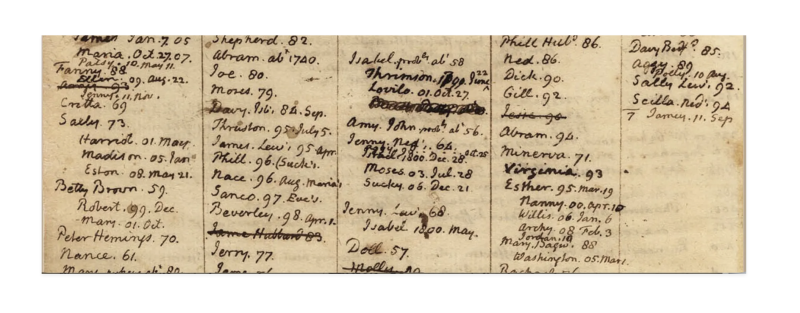 James Jan. 7. 05
Maria. Oct. 27. 07.
Patsy. 10. May 11.
Fanny. 88
Ellen. 09. Aug. 22.
Jenny. 11. Nov.
Cretia. 69
Sally. 73.
Harriot. 01. May.
Madison. 05. Jan.
Eston. 08. May 21.
Betty Brown. 59.
Robert. 99. Dec.
Mary. 01. Oct.
Peter Hemings. 70.
Nance. 61.
Shepherd. 82.
Abram. abt 1740.
Joe. 80.
Moses. 79.
Davy. Isb. 84. Sep.
Thruston. 95. July 5.
James. Lew's. 95. Apr.
Phill. 96. (Suck's.
Nace. 96. Aug. Maria's
Sanco. 97. Eve's.
Beverley. 98. Apr. 1.
James Hubbard 83.
Jerry. 77.
Isabel. probly abt 58
Thrimson. 1799. June 22
Lovilo. 01. Oct. 27.
Amy. John. probly abt 56.
Jenny. Ned's. 64.
1800. Dec. 28.
Moses. 03. Jul. 28
Sucky. 06. Dec. 21.
Jenny. Lew's 68.
Isabel 1800. May.
Doll. 57.
Phill Hub.d 86.
Ned. 86.
Dick. 90.
Gill. 92.
Abram. 94.
Minerva. 71.
Virginia. 93
Esther. 95. Mar. 19
Nanny. 00. Apr. 10
Willis. 06. Jan. 6
Archy. 08 Feb. 3
Jordan. 10
Mary. Bagw. 88
Washington. 05. Mar.
Davy Bedf.d 85.
Aggy. 89
Polly. 10 Aug.
Sally Lew's. 92.
Scilla. Ned's. 94
7 James. 11. Sep